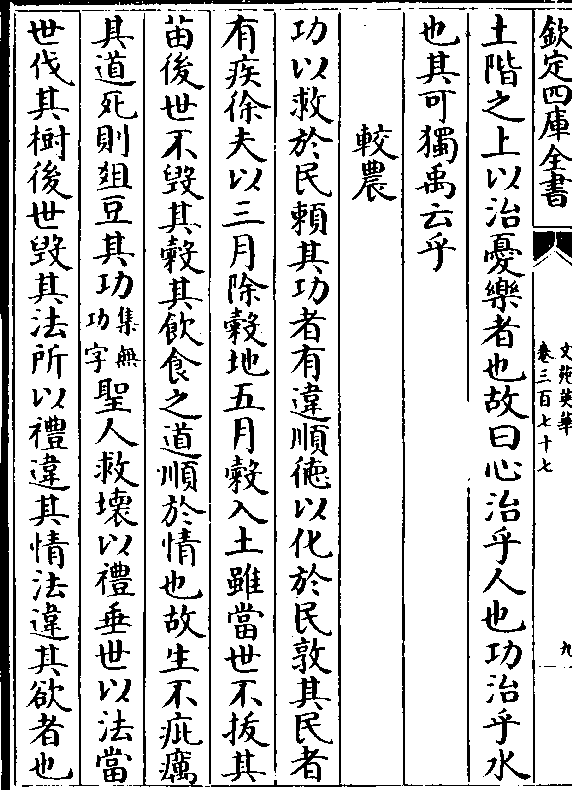 欽定四庫全書
文苑英華
卷三百七十七
九
土階之上以治憂樂者也故曰心治乎人也功治乎水
也其可獨禹云乎
較農
功以救於民賴其功者有違順德以化於民敦其民者
有疾徐夫以三月除穀地五月穀入土雖當世不拔其
苗後世不毀其穀其飲食之道順於情也故生不疵癘
其道死則俎豆其功集無功字聖人救壞以禮垂世以法當
世伐其樹後世毀其法所以禮違其情法違其欲者也